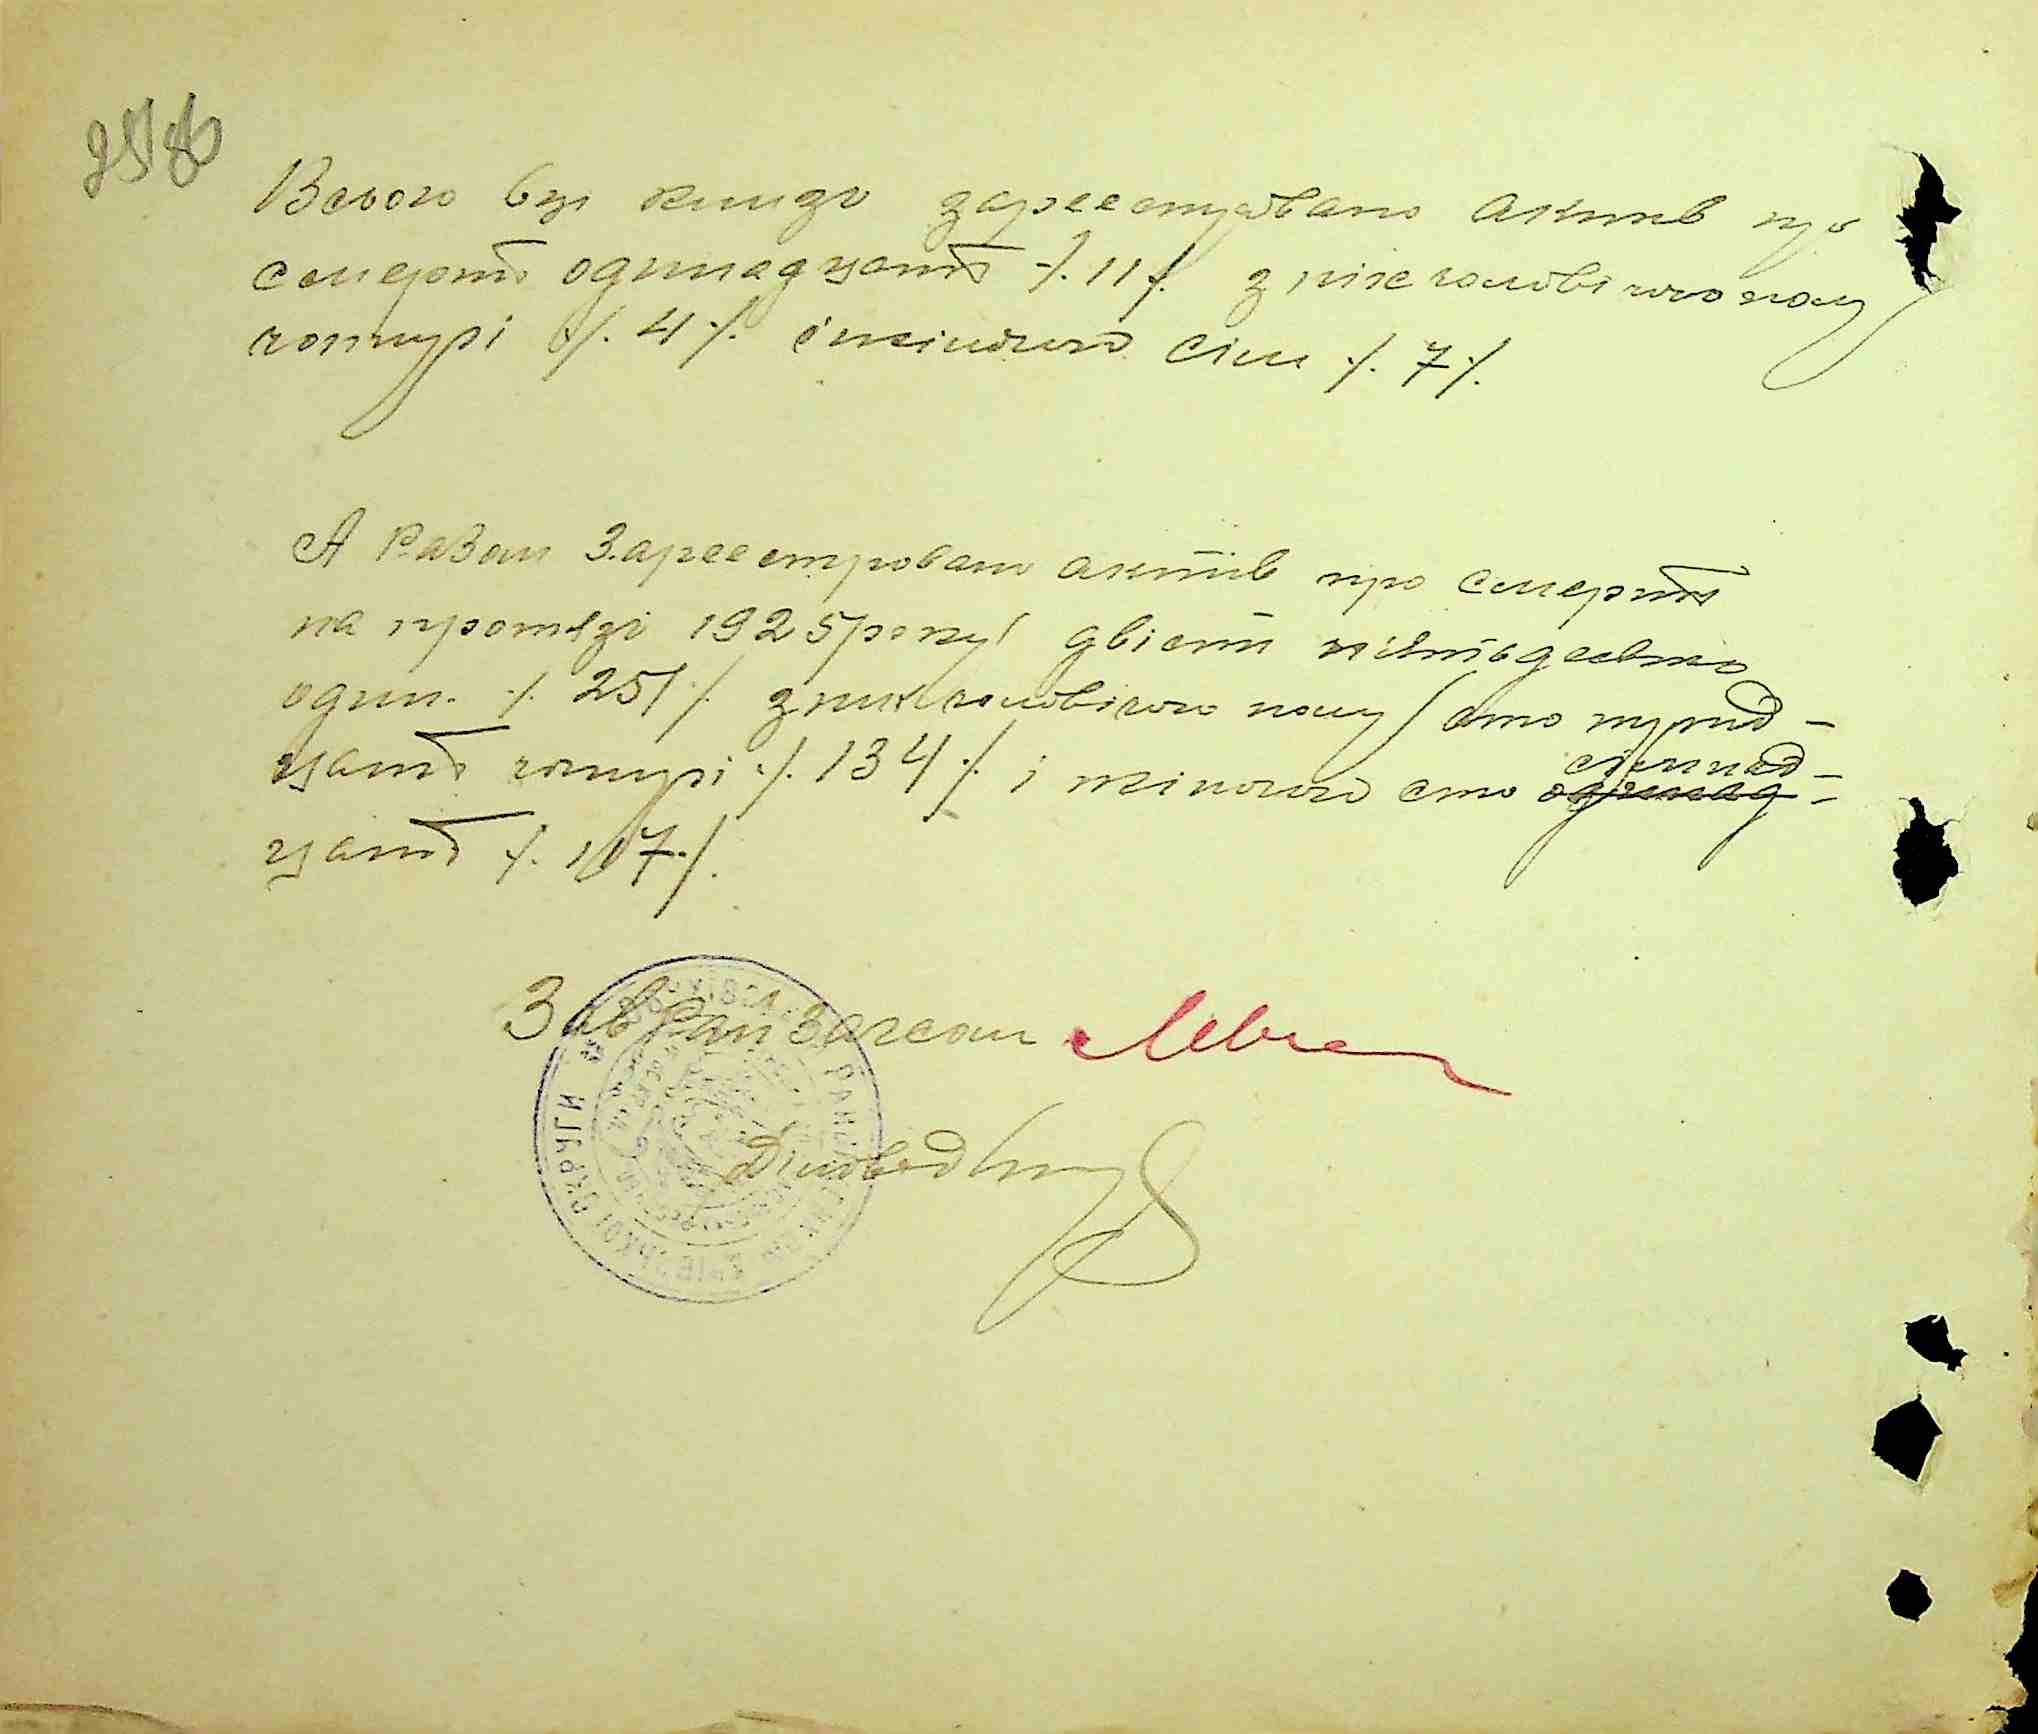 258
Всього вції книзі зареестровано актів про
смерть одинадцять ./. 11 ./. з них чоловічого полу
чотирі ./. 4 ./. і жіночого сім ./. 7 ./.
А Разом Зареестровано актів про смерть
на протязі 1925 року двісті пятьдесять
один. ./. 251 ./. з них чоловічого полу сто трид-
цять чотирі ./. 134 ./. і жіночого сто одинад-
сімнад-
цять ./. 117 ./.
Зав Рай Загсом
Діловод